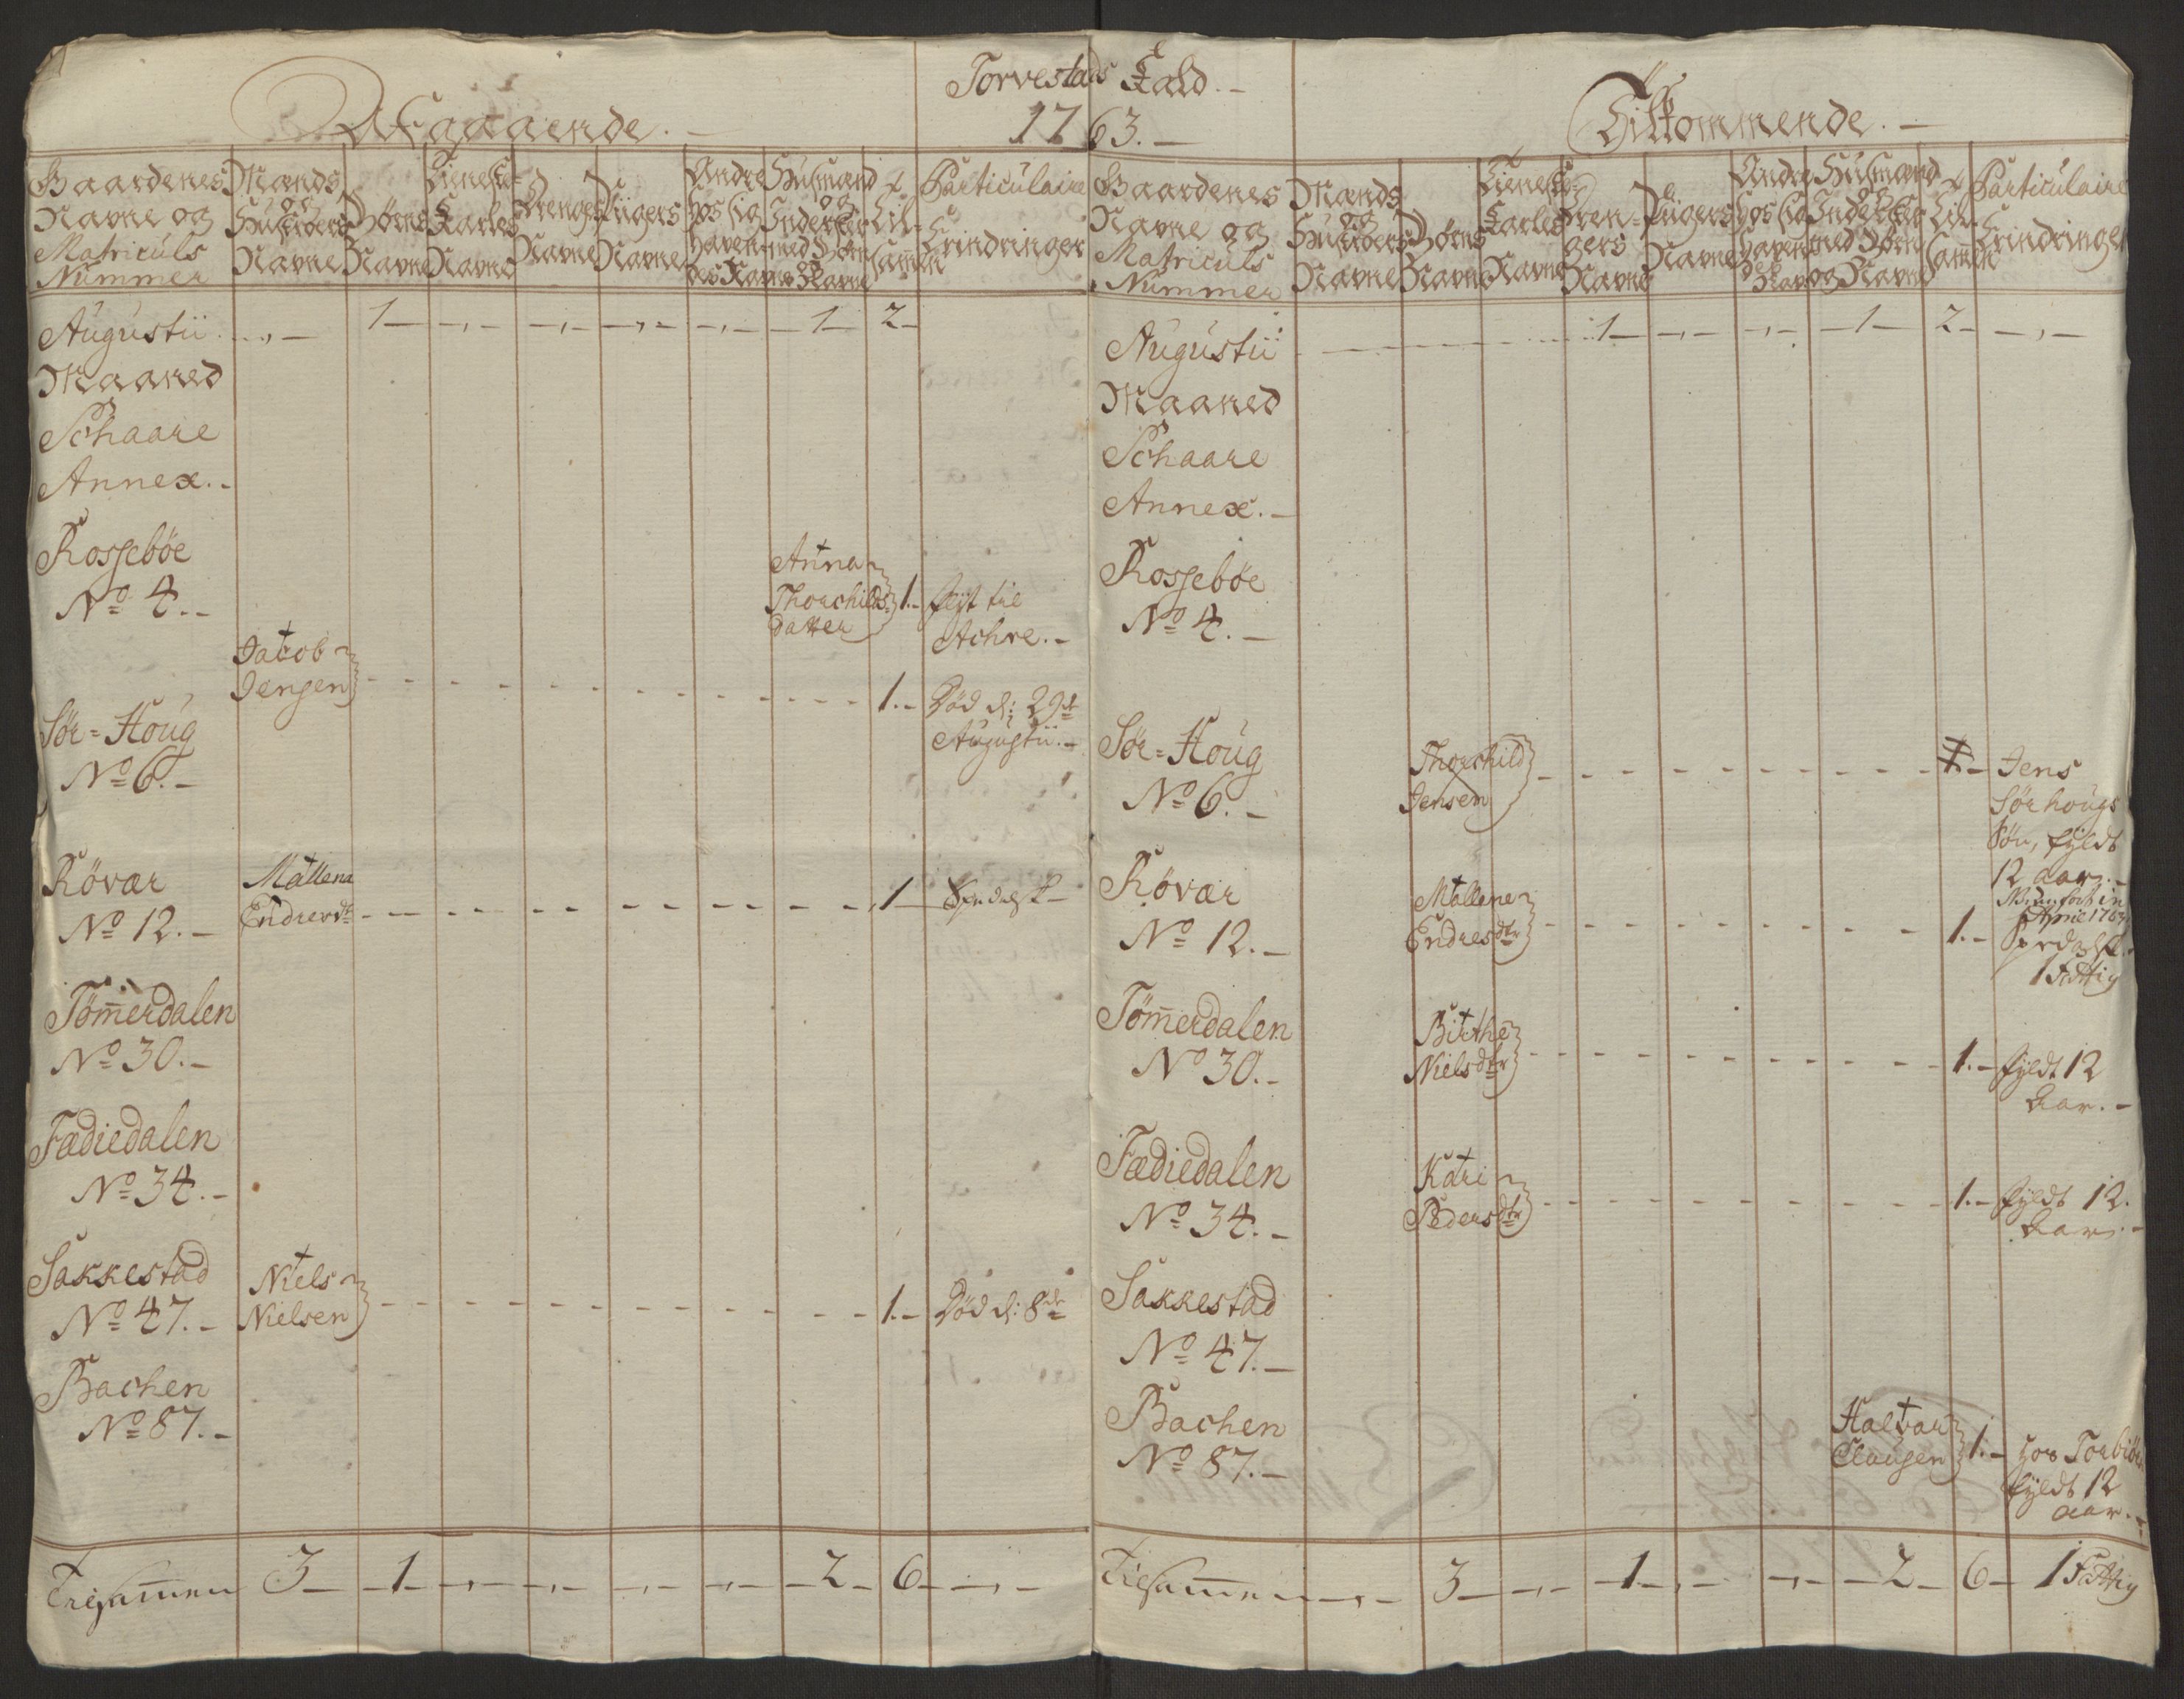 Torvestads Kald. -
1763. -
Afgaaende. -
Gaardenes Navne og Matriculs Nummer
Mands og Hustroers Navne
Børns Navne
Tieneste Karles Navne
Drenges Navne
Piigers Navne
Andre hos sig havendes Navne
Husmænd og Inderster med Børn og Navne
Tilsamen
Particulaire Erindringer
Augustii . „ - 1 - „ - „ - „ - „ - 1 - 2 -
Maaned
Schaare
Annex. -
Rossebøe
No 4. -
Anna
Thorchilds
datter 1. -
fløt til
Achre. -
Jacob
Jensen 1. -
Død d: 29de
Augustii. -
Sør-Houg
No 6. -
Røvær
No 12. -
Mallena
Endresdr 1 -
Tömerdalen
No 30. -
Fædiedalen
No 34. -
Sakkestad
No 47. -
Niels
Nielsen 1. -
Død d: 8de
Bachen
No 87. -
Tilsammen 3 - 1 - „ - „ - „ - „ - 2 - 6 - „ -
Tilkommende. -
Gaardenes Navne og Matriculs Nummer
Mands og Hustroers Navne
Børns Navne
Tieneste Karles Navne
Drengers Navne
Piigers Navne
Andre hos sig havendes Navne
Husmænd og Inderster med Børn og Navne
Tilsamen
Particulaire Erindringer
Augustii - 1 - „ - „ - 1 - 2 - „ -
Maaned
Schaare
Annex. -
Rossebøe
No 4. -
Sør-Houg
No 6. -
Thorchild
Jensen 1. -
Jens
Sørhougs
Søn, fyldt
12 aar. -
Røvær
No 12. -
Mallene
Endresdtr 1. -
April 1763
1 Fattig
Tömerdalen
No 30. -
Birthe
Nielsdtr 1. -
fyldt 12
Aar. -
Fædiedalen
No 34. -
Kari
Pedersdtr 1. -
fyldt 12.
Aar. -
Sakkestad
No 47. -
Bachen
No 87. -
Halvar
Clausen 1. -
hos Torbiör
fyldt 12
aar. -
Tilsammen - „ - 3 - „ - 1 - „ - „ - 2 - 6 - 1 Fattig